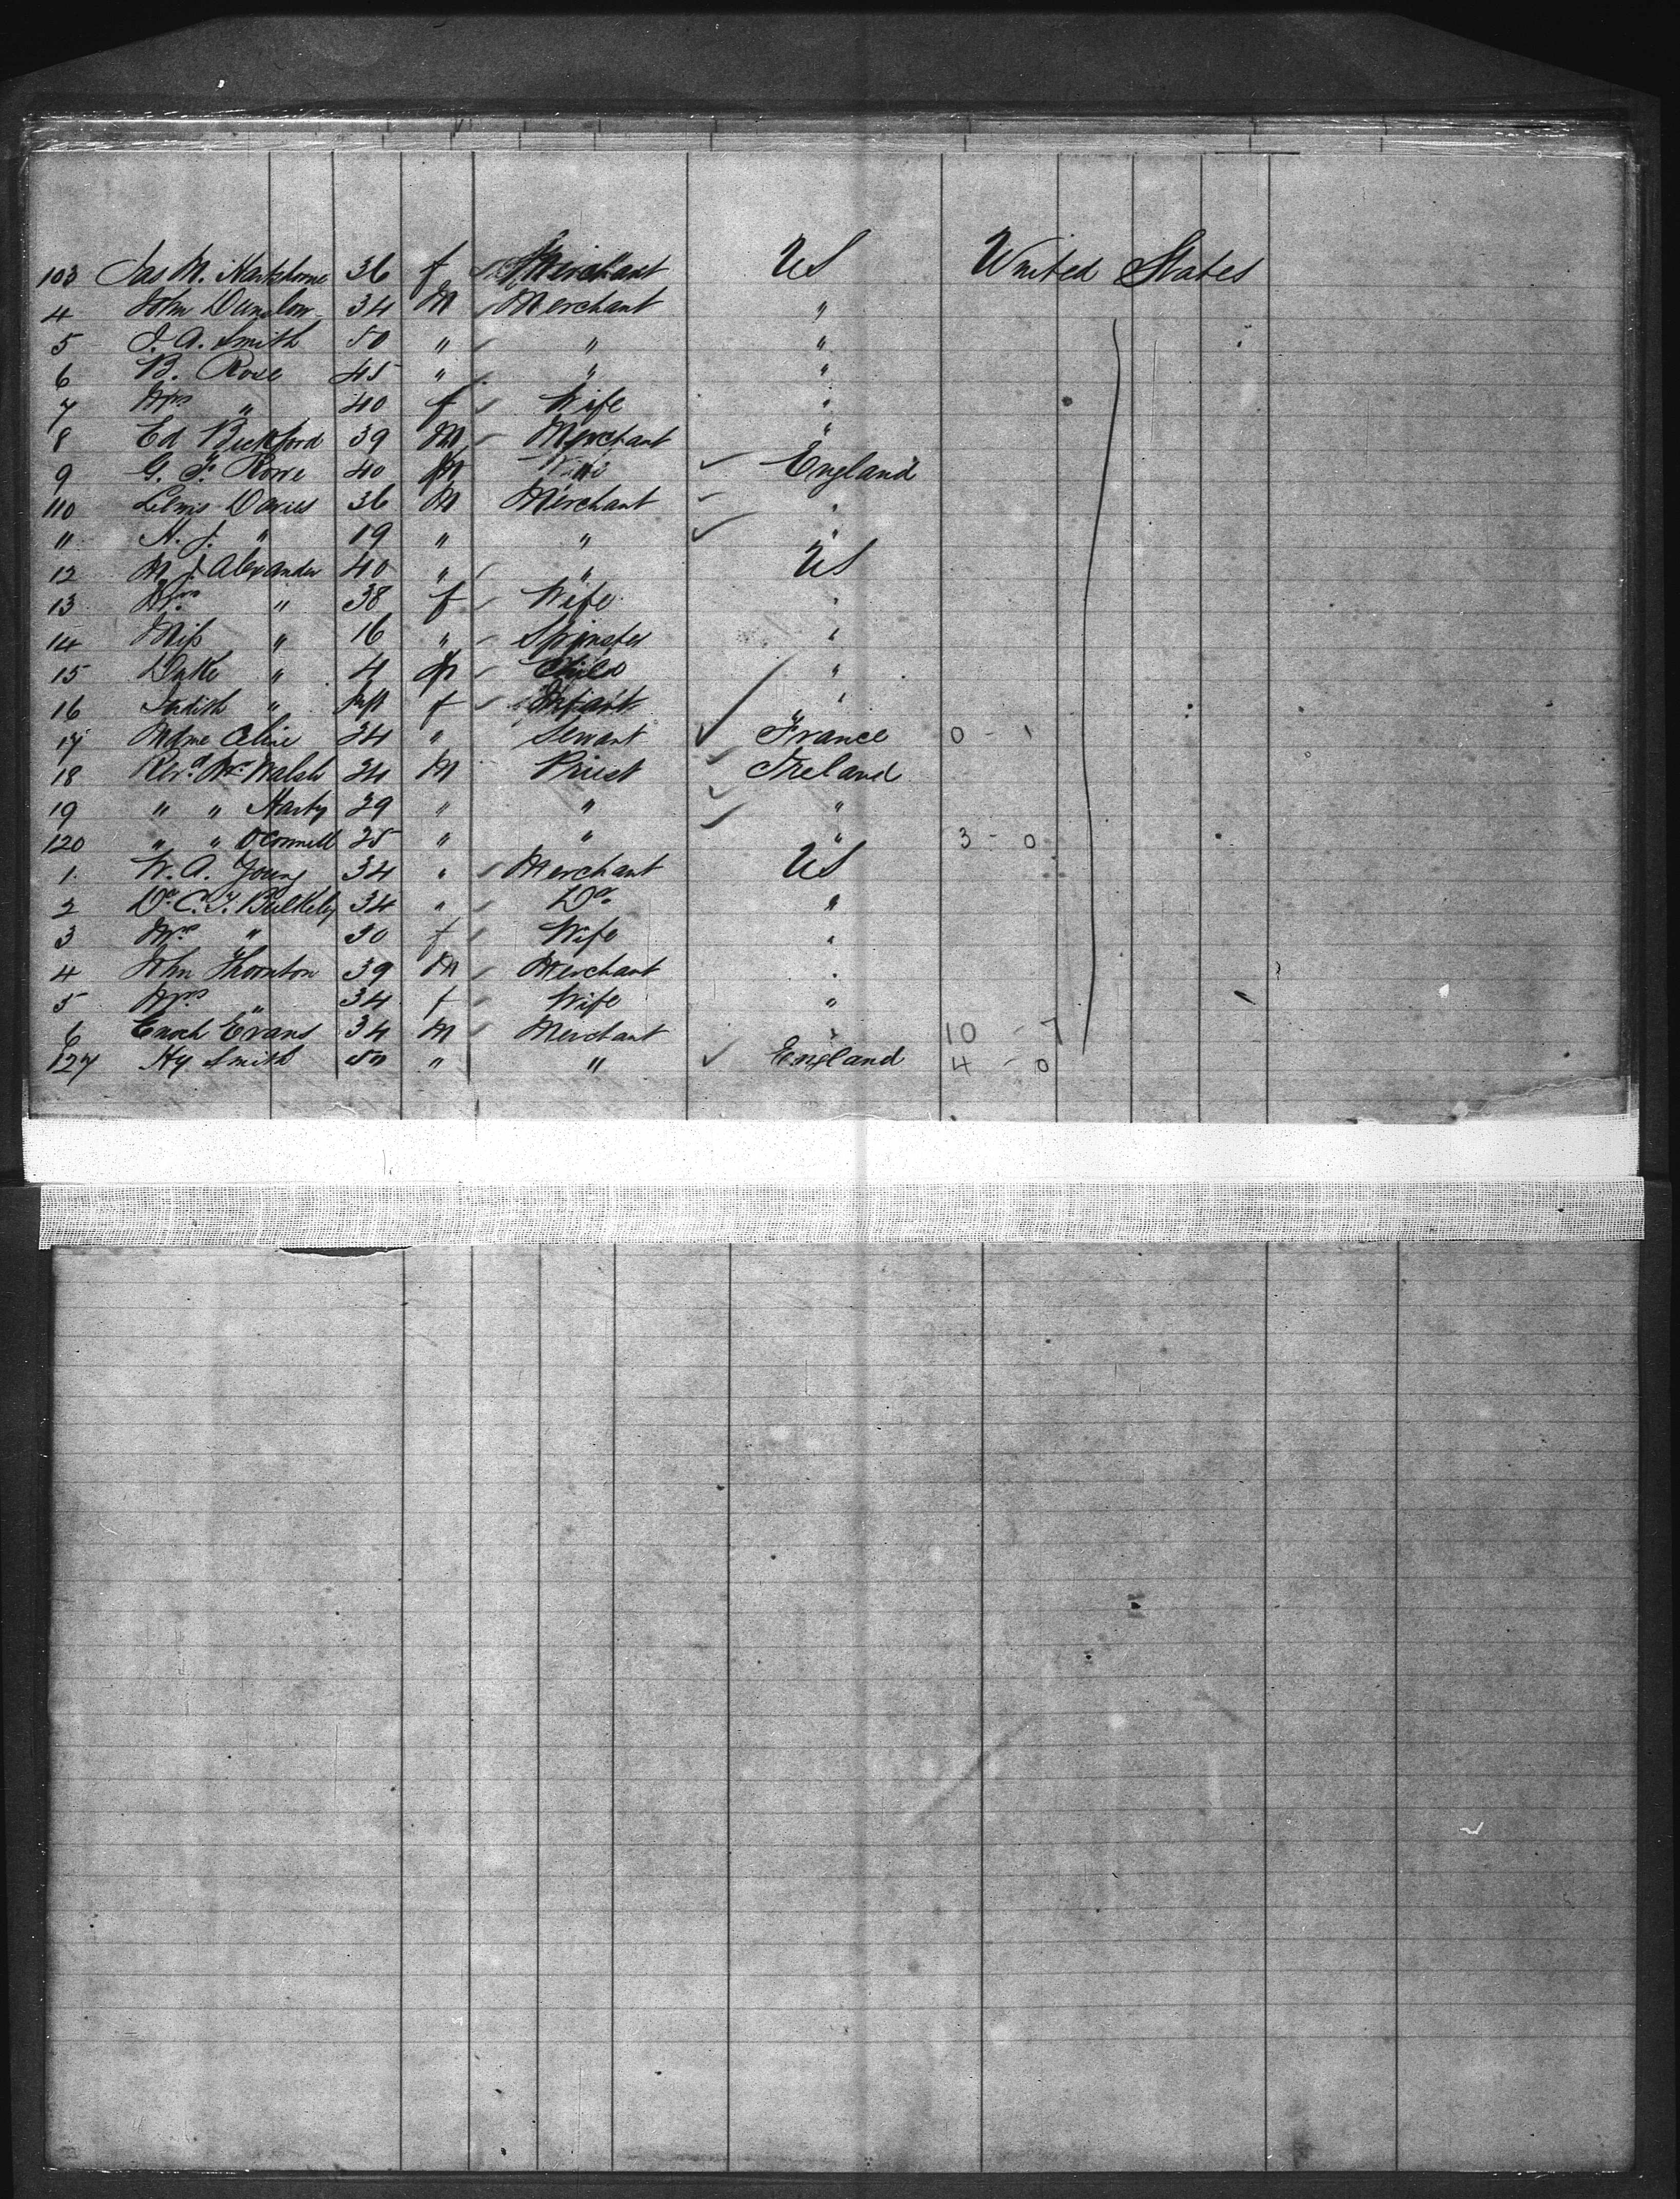 103 Jas M. Hartshorne 36 f Merchant US United States
4 John Dunslow 34 M Merchant "
5 J. A. Smith 50 " " "
6 B. Rose 45 " " "
7 Mrs " 40 f Wife "
8 Ed Bickford 39 M Merchant "
9 G. F. Rowe 40 M " England
110 Lewis Davies 36 M Merchant "
11 H. J. " 19 " " "
12 M J Alexander 40 " " US
13 Mrs " 38 f Wife "
14 Miss " 16 " Spinster "
15 Duke " 4 M Child "
16 Judith " Inft f Infant "
17 Mdme Celine 34 " Servant France 0 - 1
18 Revd Mr Walsh 24 M Priest Ireland
19 " " Harty 29 " " "
120 " " OConnell 25 " " " 3 - 0
1 W. A. Young 34 " Merchant US
2 Dr C. F. Bulkely 34 " Do "
3 Mrs " 30 f Wife "
4 John Thornton 39 M Merchant "
5 Mrs " 34 f Wife "
6 Enoch Evans 34 M Merchant " 10 - 7
127 Hy Smith 50 " " England 4 - 0